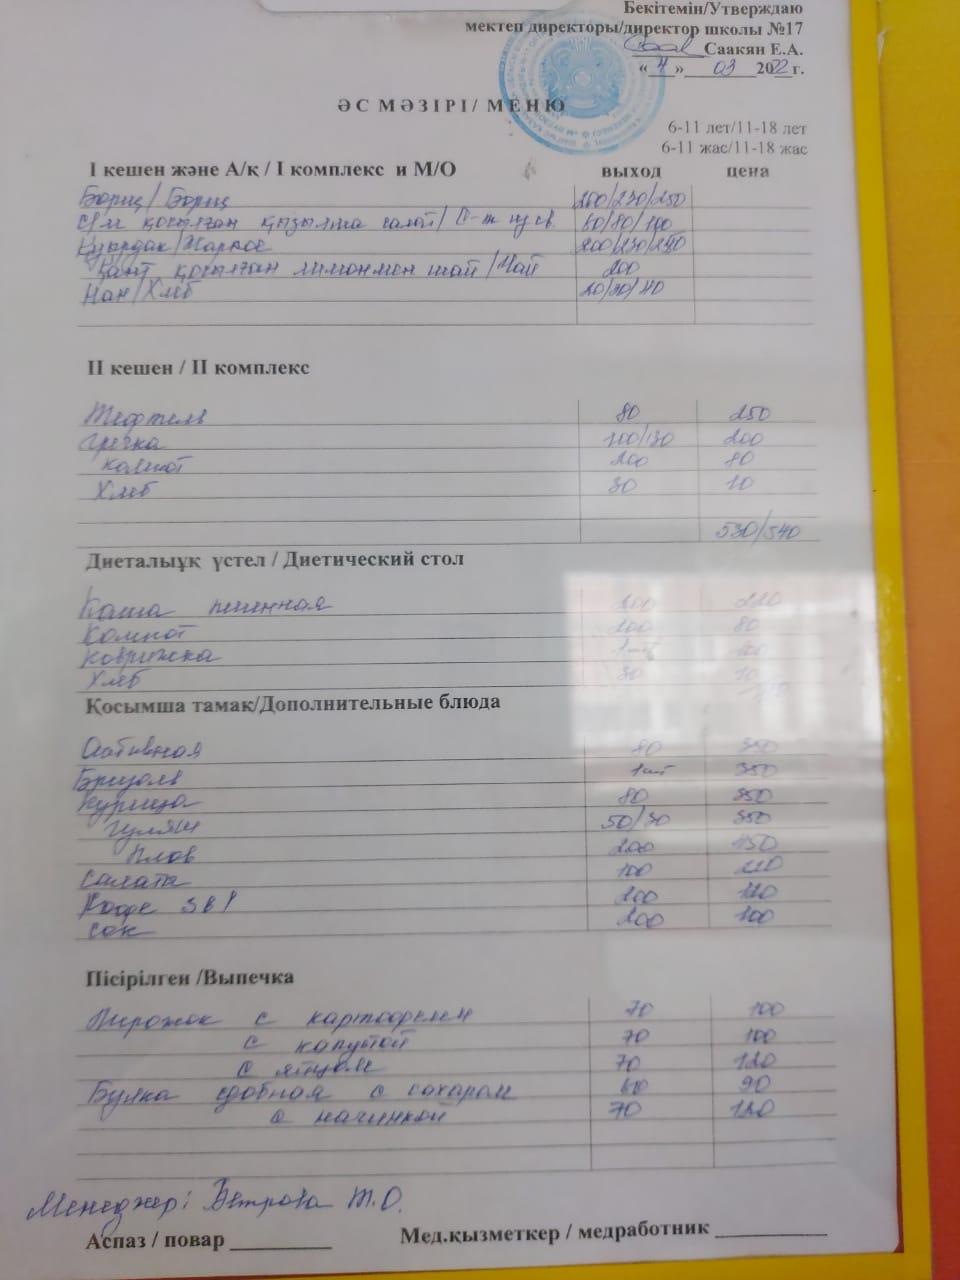 Бекітемін/Утверждаю
мектеп директоры/директор школы №17
Саакян Е.А.
«4» 03 2022 г.
ӘС МӘЗІРІ/ МЕНЮ
6-11 лет/11-18 лет
6-11 жас/11-18 жас
І кешен және А/қ / І комплекс и М/О выход цена
Борщ/Борщ 200/230/250
қосылған қызылша салат/ 60/80/100
Қуырдақ/Жаркое 200/230/250
Қант қосылған лимонмен шай/Чай 200
Нан/Хлеб 20/30/40
ІІ кешен / ІІ комплекс
Тефтель 80 250
Гречка 100/130 200
Компот 200 80
Хлеб 30 10
530/540
Диеталыұқ үстел / Диетический стол
Каша пшенная 200 220
Компот 200 80
Коврижка 1шт 100
Хлеб 30 10
Қосымша тамақ/Дополнительные блюда
Отбивная 80 350
Бризоль 1шт 350
Курица 80 350
Гуляш 50/30 350
Плов 200 450
Салаты 100 220
Кофе 3в1 200 120
Сок 200 100
Пісірілген /Выпечка
Пирожок с картофелем 70 100
с капустой 70 100
с яйцом 70 120
Булка сдобная с сахаром 60 90
с начинкой 70 120
Менеджер: Ветрова Т.О.
Аспаз / повар Мед.қызметкер / медработник